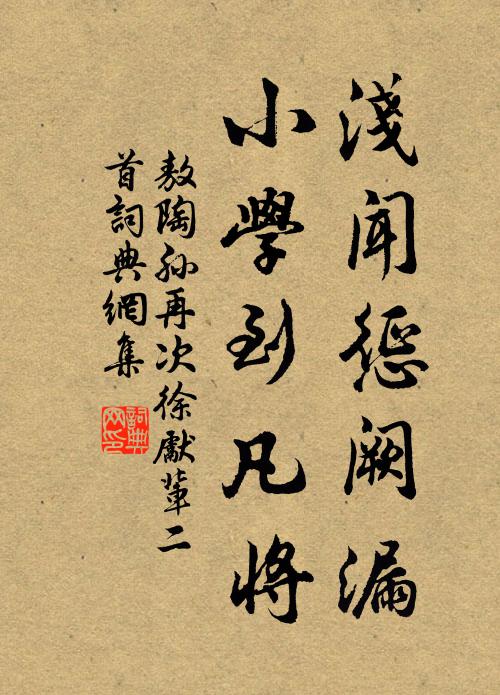 淺聞徵闕漏
小學到凡將
敖陶孫再次徐獻輩二
首詞典網集
詞典網印